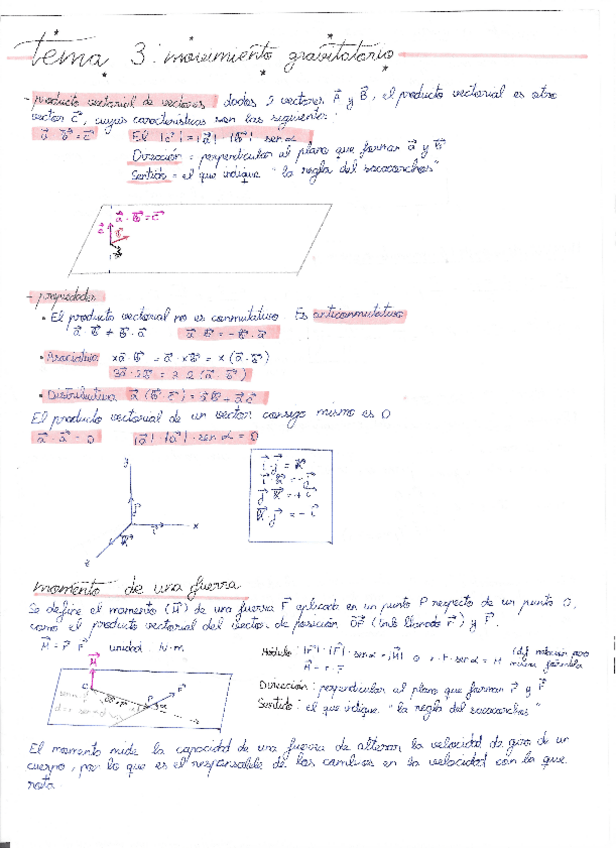 tema 3: movimiento gravitatorio
- producto vectorial de vectores: dados 2 vectores A⃗ y B⃗, el producto vectorial es otro
vector c⃗, cuyas características son las siguientes:
a⃗ · b⃗ = c⃗ El |c⃗| = |a⃗| · |b⃗| · sen α
Dirección = perpendicular al plano que forman a⃗ y b⃗
Sentido = el que indique "la regla del sacacorchos"
a⃗ · b⃗ = c⃗
- propiedades
• El producto vectorial no es conmutativo. Es anticonmutativo
a⃗ · b⃗ ≠ b⃗ · a⃗ a⃗ · b⃗ = - b⃗ · a⃗
• Asociativa: xa⃗ · b⃗ = a⃗ · xb⃗ = x (a⃗ · b⃗)
• Distributiva
El producto vectorial de un vector consigo mismo es 0
a⃗ · a⃗ = 0 |a⃗| · |a⃗| · sen α = 0
y
x
z
i⃗ · j⃗ = k⃗
j⃗ · k⃗ = + i⃗
k⃗ · j⃗ = - i⃗
momento de una fuerza
Se define el momento (M⃗) de una fuerza F⃗ aplicada en un punto P respecto de un punto O,
como el producto vectorial del vector de posición OP⃗ y F⃗.
unidad: N·m Módulo: |r⃗| · |F⃗| · sen α = |M⃗|
Dirección: perpendicular al plano que forman r⃗ y F⃗
Sentido: el que indique "la regla del sacacorchos"
M⃗
El momento mide la capacidad de una fuerza de alterar la velocidad de giro de un
cuerpo, por lo que es el responsable de los cambios en la velocidad con la que
rota.